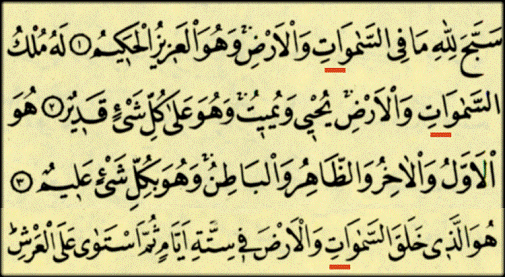 سَبَّحَ لِلّٰهِ مَا فِى السَّمٰوَاتِ وَالْاَرْضِۚ وَهُوَ الْعَزٖيزُ الْحَكٖيمُ ﴿١﴾ لَهُ مُلْكُ
السَّمٰوَاتِ وَالْاَرْضِۚ يُحْيٖى وَيُمٖيتُۚ وَهُوَ عَلٰى كُلِّ شَیْءٍ قَدٖيرٌ ﴿٢﴾ هُوَ
الْاَوَّلُ وَالْاٰخِرُ وَالظَّاهِرُ وَالْبَاطِنُۚ وَهُوَ بِكُلِّ شَیْءٍ عَلٖيمٌ ﴿٣﴾
هُوَ الَّذٖى خَلَقَ السَّمٰوَاتِ وَالْاَرْضَ فٖى سِتَّةِ اَيَّامٍ ثُمَّ اسْتَوٰى عَلَى الْعَرْشِؕ